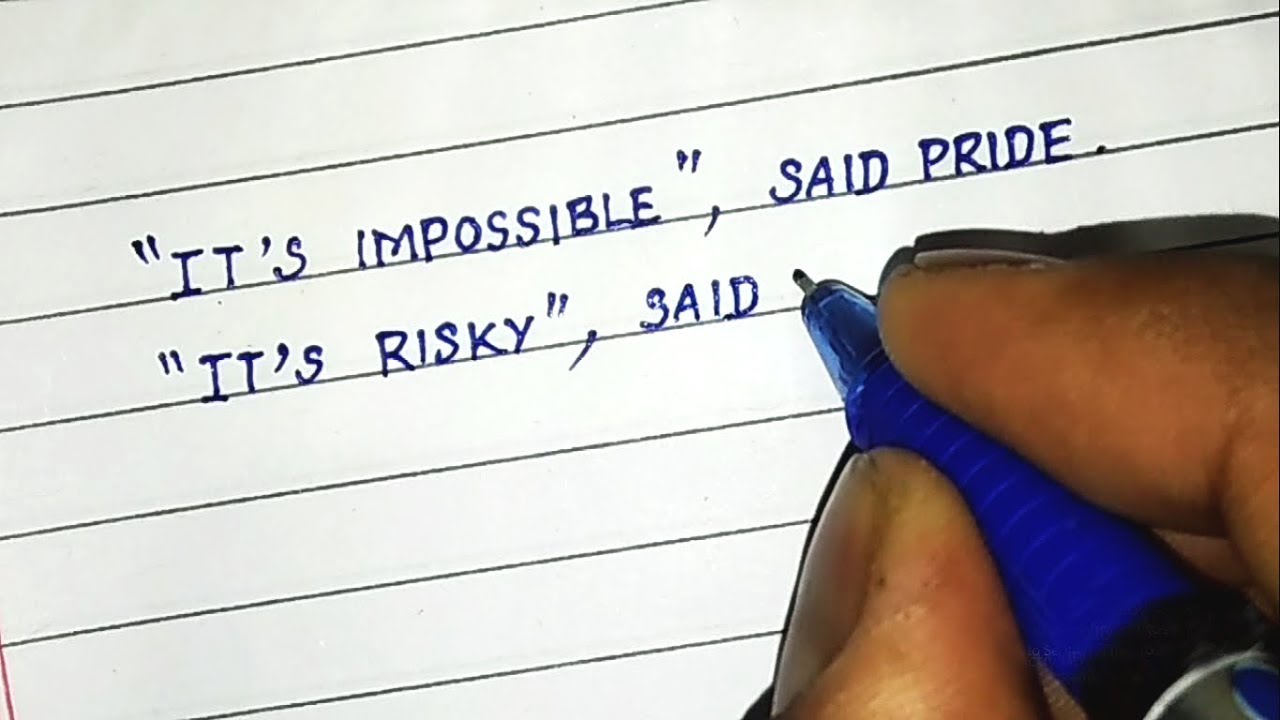 "IT'S IMPOSSIBLE", SAID PRIDE.
"IT'S RISKY", SAID